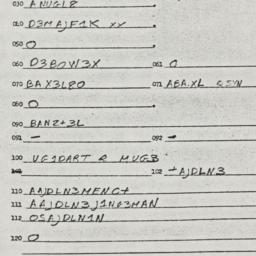 030 ANUGL8
040 D3MAJF1K XX
050 O
060 D3BOW3X 061 O
070 BAX3L8O 071 ABA.XL & SYN
080 O
090 BANZ+3L
091 - 092 -
100 UG1DART & MUG3
102 +AJDLN3
110 AAJDLN3MENC+
111 AAJDLN3J1NG3MAN
112 OSAJDLN1N
120 O